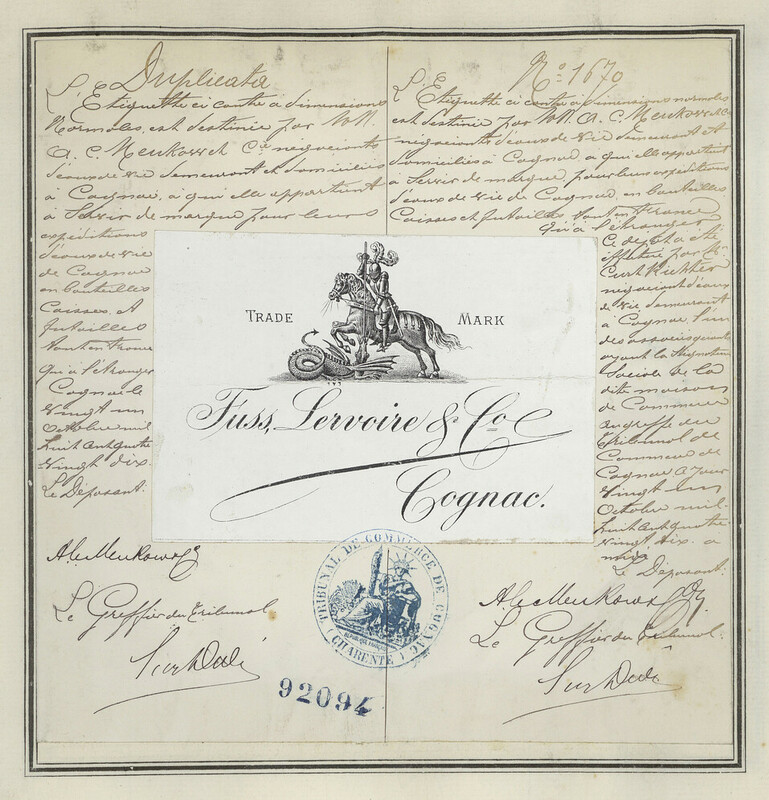 Duplicata
L'Etiquette ci contre à dimensions
Normales, est destinée par MM.
A. C. Meukow et Cie négociants
d'eaux de vie demeurant et domiciliés
à Cognac, à qui elle appartient
à Servir de marque pour leurs
expéditions
d'eaux de vie
de Cognac
en bouteilles
Caisses et
futailles
tant en France
qu'à l'étranger
Cognac le
Vingt un
Octobre mil
huit cent quatre
Vingt dix.
Le Déposant:
A. C. Meukow & Co
Le Greffier du Tribunal
No 1670
L'Etiquette ci contre à dimensions normales
est destinée par MM. A. C. Meukow et Cie
négociants d'eaux de vie demeurant et
domiciliés à Cognac, à qui elle appartient
à Servir de marque, pour leurs expéditions
d'eaux de vie de Cognac, en bouteilles
Caisses et futailles tant en France
qu'à l'étranger
Ce dépôt a été
effectué par Mr
Curt Richter
négociant d'eaux
de vie demeurant
à Cognac l'un
des associés
ayant la Signature
Sociale de la
dite maison
de Commerce
au greffe du
Tribunal de
Commerce de
Cognac ce jour
Vingt un
Octobre mil
huit cent quatre
Vingt dix. à
midi
Le Déposant:
A. C. Meukow & Co
Le Greffier du Tribunal.
TRADE MARK
Fuss, Lervoire & Co
Cognac.
TRIBUNAL DE COMMERCE DE COGNAC
(CHARENTE)
RÉPUBLIQUE FRANÇAISE
92094